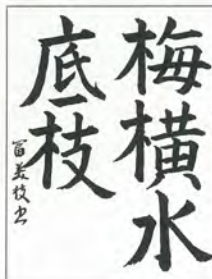 梅横水
底枝
富美枝书